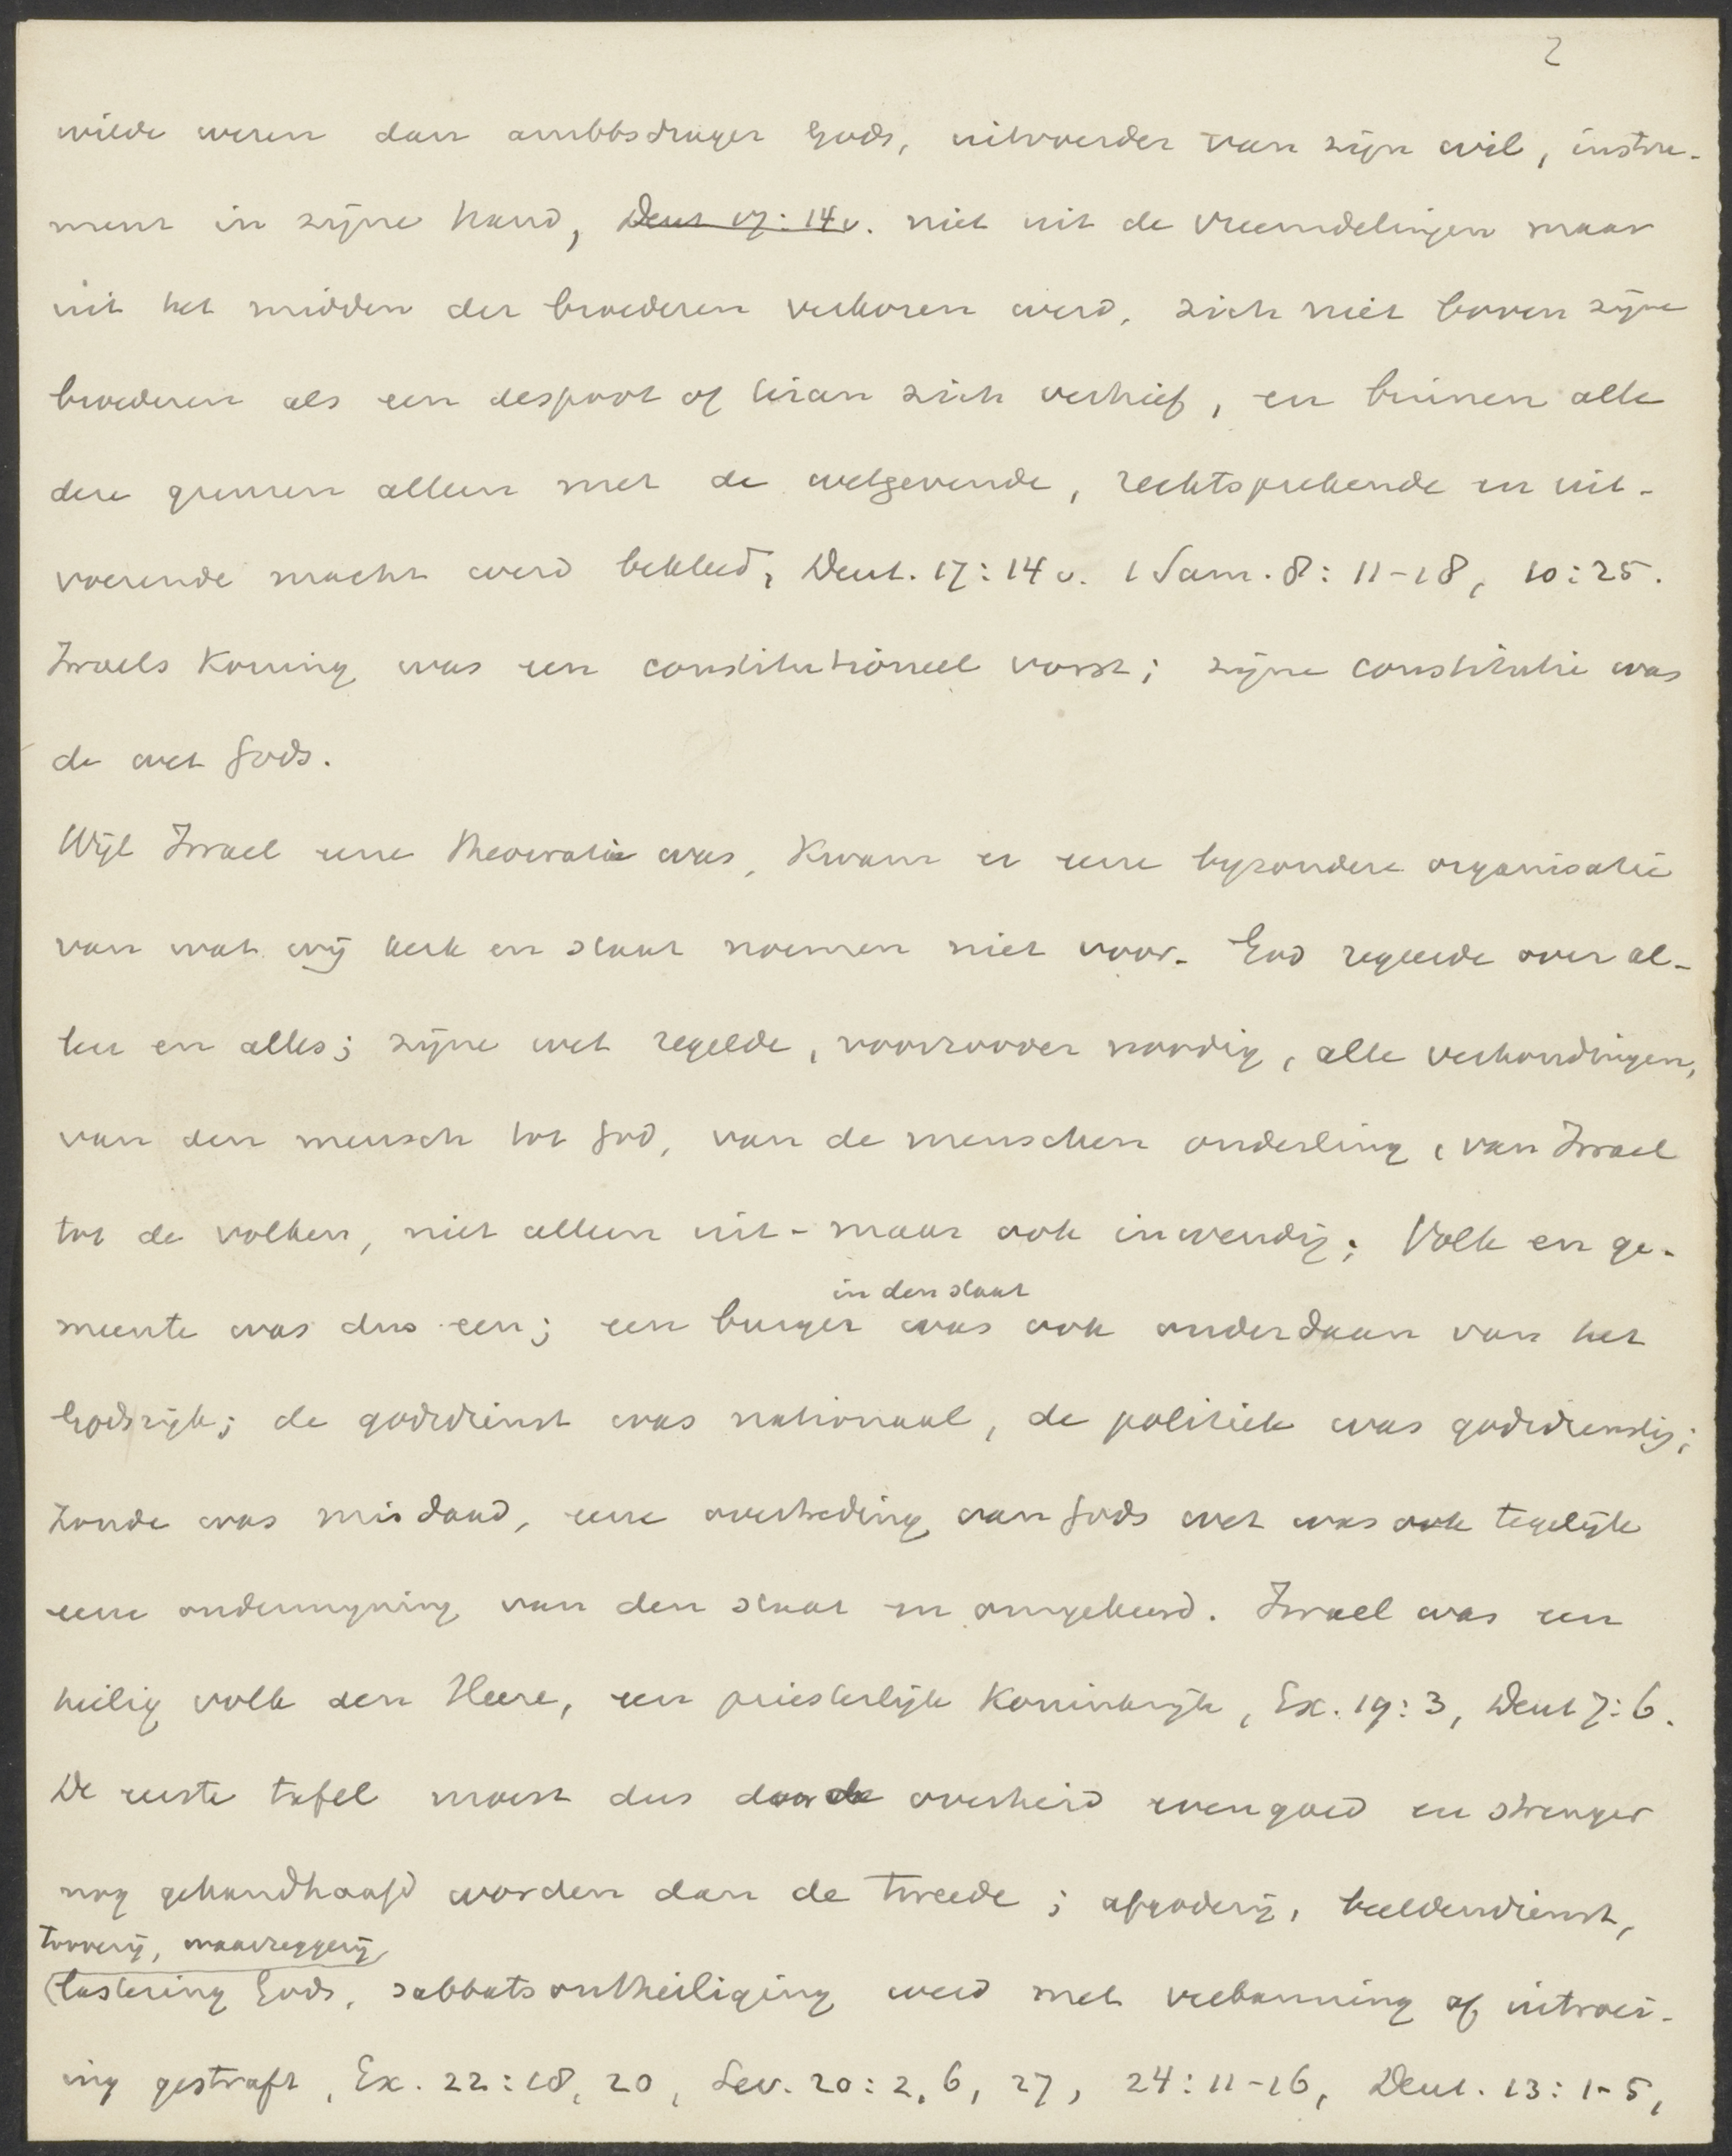 2
wilde wezen dan ambtsdrager Gods, uitvoerder van zijn wil, instru-
ment in zijne hand, Deut 17:14v. niet uit de vreemdelingen maar
uit het midden der broederen verkoren werd, zich niet boven zijne
broederen als een despoot of tiran zich verhief, en binnen alle
deze grenzen alleen met de wetgevende, rechtsprekende en uit-
voerende macht werd bekleed, Deut. 17:14 v. 1 Sam. 8:11-18, 10:25.
Israels Koning was een constitutioneel vorst; zijne constitutie was
de wet Gods.
Wijl Israel eene theocratie was, kwam er eene byzondere organisatie
van wat wij kerk en staat noemen niet voor. God regeerde over al-
len en alles; zijne wet regelde, voorzoover noodig, alle verhoudingen,
van den mensch tot God, van de menschen onderling, van Israel
tot de volken, niet alleen uit- maar ook inwendig. Volk en ge-
in den staat
meente was dus een; een burger was ook onderdaan van het
Godsrijk; de godsdienst was nationaal, de politiek was godsdienstig;
zonde was misdaad, eene overtreding van Gods wet was ook tegelijk
eene ondermyning van den staat en omgekeerd. Israel was een
heilig volk den Heere, een priesterlijk Koninkrijk, Ex. 19:3, Deut 7:6.
De eerste tafel moest dus door de overheid evengoed en strenger
nog gehandhaafd worden dan de tweede; afgoderij, beeldendienst,
tooverij, waarzeggerij,
lastering Gods, sabbatsontheiliging werd met verbanning of uitroei-
ing gestraft, Ex. 22:18, 20, Lev. 20:2, 6, 27, 24:11-16, Deut. 13:1-5,